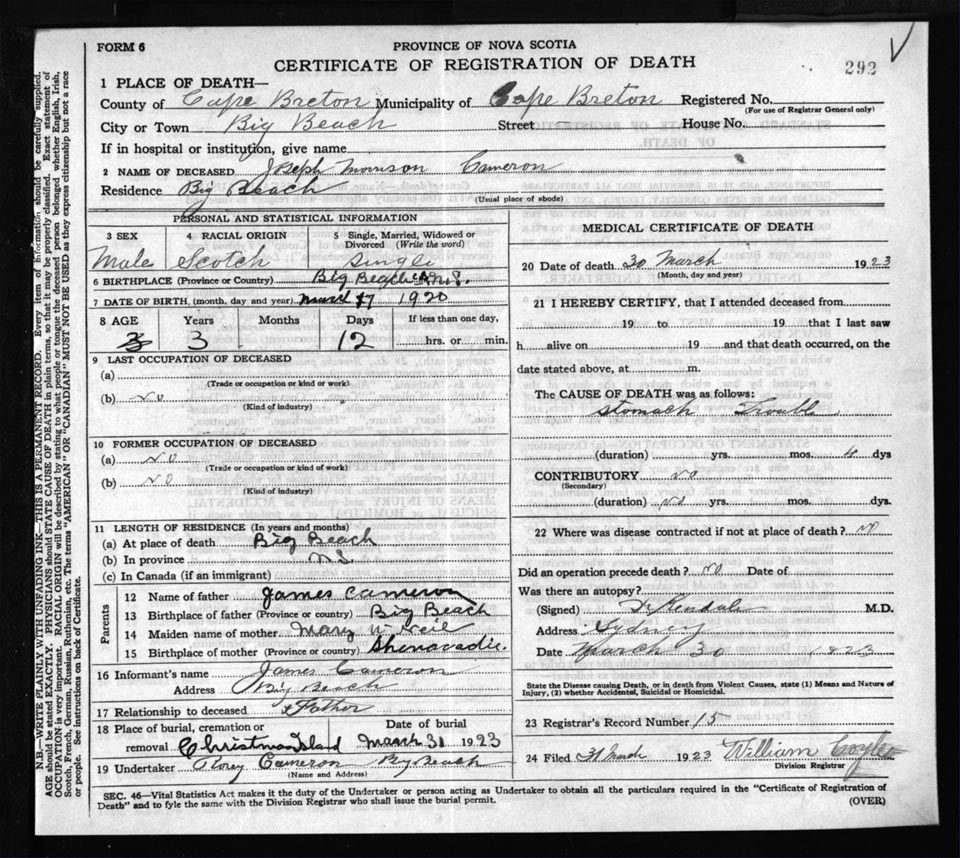 FORM 6
PROVINCE OF NOVA SCOTIA
CERTIFICATE OF REGISTRATION OF DEATH
292
1 PLACE OF DEATH—
County of Cape Breton Municipality of Cape Breton Registered No.
(For use of Registrar General only)
City or Town Big Beach Street House No.
If in hospital or institution, give name
2 NAME OF DECEASED Joseph Morrison Cameron
Residence Big Beach
(Usual place of abode)
PERSONAL AND STATISTICAL INFORMATION
3 SEX Male
4 RACIAL ORIGIN Scotch
5 Single, Married, Widowed or Divorced (Write the word) Single
6 BIRTHPLACE (Province or Country) Big Beach
7 DATE OF BIRTH, (month, day and year) 17 1920
8 AGE Years Months Days If less than one day,
3 3 12 hrs. or min.
9 LAST OCCUPATION OF DECEASED
(a)
(Trade or occupation or kind or work)
(b) No
(Kind of industry)
10 FORMER OCCUPATION OF DECEASED
(a) No
(Trade or occupation or kind of work)
(b) No
(Kind of industry)
11 LENGTH OF RESIDENCE (In years and months)
(a) At place of death Big Beach
(b) In province N S
(c) In Canada (if an immigrant)
Parents
12 Name of father James Cameron
13 Birthplace of father (Province or country) Big Beach
14 Maiden name of mother Mary
15 Birthplace of mother (Province or country) Shenacadie
16 Informant's name James Cameron
Address Big Beach
17 Relationship to deceased Father
18 Place of burial, cremation or removal Christmas Island
Date of burial March 31 1923
19 Undertaker Cameron Big Beach
(Name and Address)
MEDICAL CERTIFICATE OF DEATH
20 Date of death 30 March 1923
(Month, day and year)
21 I HEREBY CERTIFY, that I attended deceased from
19 to 19 that I last saw
h alive on 19 and that death occurred, on the
date stated above, at m.
The CAUSE OF DEATH was as follows:
Stomach Trouble
(duration) yrs. mos. 4 dys
CONTRIBUTORY No
(Secondary)
(duration) No yrs. mos. dys.
22 Where was disease contracted if not at place of death? No
Did an operation precede death? No Date of
Was there an autopsy?
(Signed) Kendale M.D.
Address Sydney
Date March 30 1823
State the Disease causing Death, or in death from Violent Causes, state (1) Means and Nature of
Injury, (2) whether Accidental, Suicidal or Homicidal.
23 Registrar's Record Number 15
24 Filed 31 March 1923 William Coyle
Division Registrar
SEC. 46—Vital Statistics Act makes it the duty of the Undertaker or person acting as Undertaker to obtain all the particulars required in the "Certificate of Registration of
Death" and to fyle the same with the Division Registrar who shall issue the burial permit.
(OVER)
N.B.—WRITE PLAINLY WITH UNFADING INK—THIS IS A PERMANENT RECORD. Every item of information should be carefully supplied.
AGE should be stated EXACTLY. PHYSICIANS should STATE CAUSE OF DEATH in plain terms, so that it may be properly classified. Exact statement of
OCCUPATION is very important. RACIAL ORIGIN will be described by stating to what people or tongue the deceased person belonged whether English, Irish,
Scotch, French, German, Russian, Ruthenian, etc. The terms "AMERICAN" OR "CANADIAN" MUST NOT BE USED as they express citizenship but not a race
or people. See instructions on back of Certificate.